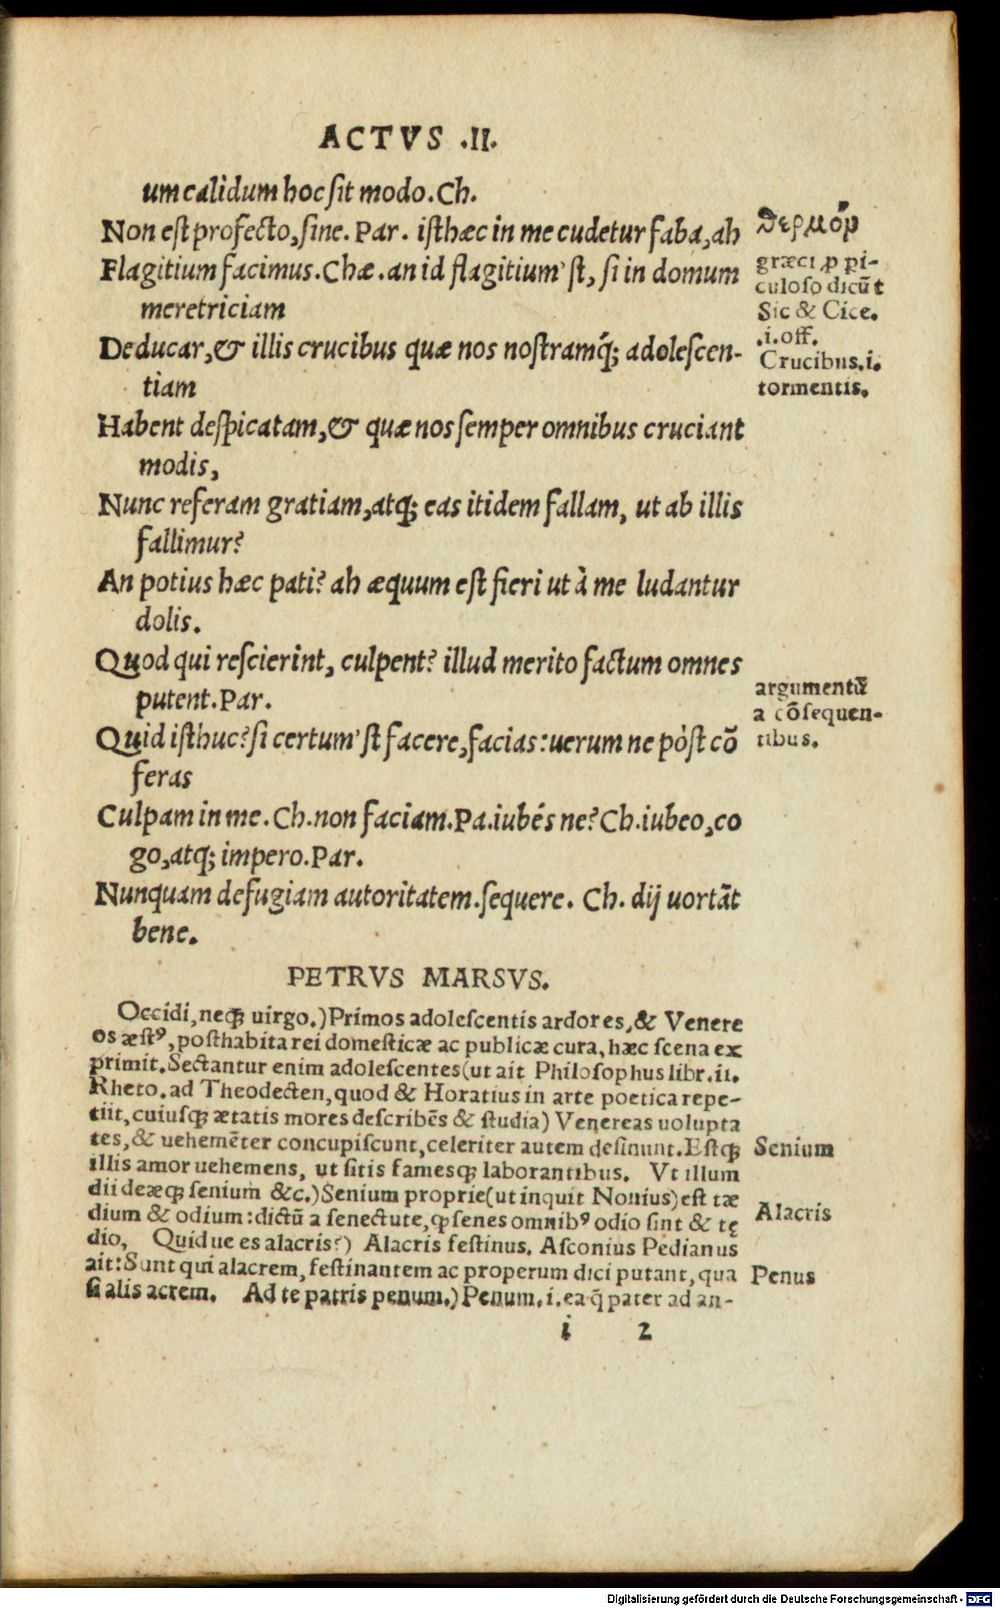 ACTVS .II.
um calidum hoc sit modo. Ch.
Non est profecto, sine. Par. isthæc in me cudetur faba, ah
Flagitium facimus. Chæ. an id flagitium'st, si in domum
meretriciam
Deducar, & illis crucibus quæ nos nostramq́; adolescen-
tiam
Habent despicatam, & quæ nos semper omnibus cruciant
modis,
Nunc referam gratiam, atq; eas itidem fallam, ut ab illis
fallimur?
An potius hæc pati? ah æquum est fieri ut à me ludantur
dolis.
Quod qui rescierint, culpent? illud merito factum omnes
putent. Par.
Quid isthuc? si certum'st facere, facias: uerum ne pòst cō
feras
Culpam in me. Ch. non faciam. Pa. iubés ne? Ch. iubeo, co
go, atq; impero. Par.
Nunquam defugiam autoritatem. sequere. Ch. dij uortāt
bene.
θερμὸν
græci p pi-
culoso dicūt
Sic & Cice.
.i. off.
Crucibus .i.
tormentis.
argumentū
a cōsequen-
tibus.
PETRVS MARSVS.
Occidi, neq; uirgo.) Primos adolescentis ardores, & Venere
os æstꝰ, posthabita rei domesticæ ac publicæ cura, hæc scena ex
primit. Sectantur enim adolescentes (ut ait Philosophus libr. ii.
Rheto. ad Theodecten, quod & Horatius in arte poetica repe-
tiit, cuiusq; ætatis mores describēs & studia) Venereas uolupta
tes, & uehemēter concupiscunt, celeriter autem desinunt. Estq;
illis amor uehemens, ut sitis famesq; laborantibus. Vt illum
dii deæq; senium &c.) Senium proprie (ut inquit Nonius) est tæ
dium & odium: dictū a senectute, ꝙ senes omnibꝰ odio sint & tę
dio, Quid ue es alacris?) Alacris festinus. Asconius Pedianus
ait: Sunt qui alacrem, festinantem ac properum dici putant, qua
si alis acrem. Ad te patris penum.) Penum .i. ea q̄ pater ad an-
Senium
Alacris
Penus
i 2
Digitalisierung gefördert durch die Deutsche Forschungsgemeinschaft - DFG